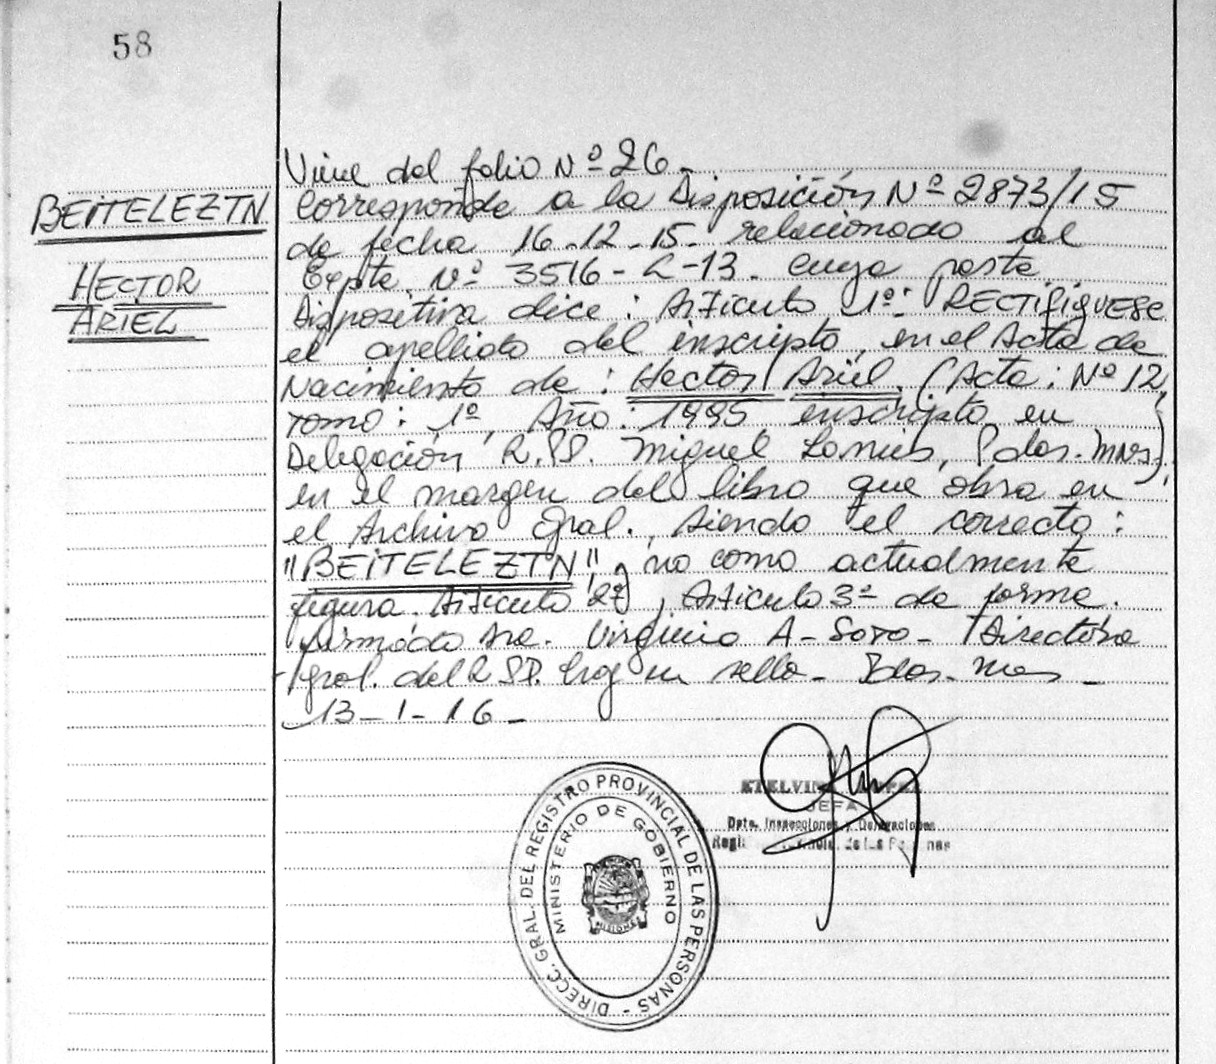 58
Viene del folio Nº 26.
BEITELEZTN
HECTOR
ARIEL
Corresponde a la Disposición Nº 2873/15
de fecha 16-12-15. relacionado al
Expte. Nº 3516-L-13. cuya parte
Dispositiva dice: Artículo 1º: RECTIFIQUESE
el apellido del inscripto, en el Acta de
Nacimiento de: Hector Ariel, (Acta: Nº 12
Tomo: 1º, Año: 1995 inscripto en
Delegación R.PP. Miguel Lanus, Pdas. Mnes.)
en el margen del libro que obra en
el Archivo Gral., siendo el correcto:
"BEITELEZTN", y no como actualmente
figura. Artículo 2º, Artículo 3º de forma.
Firmado Sra. Virginia A. Soto - Directora
Gral. del R.PP. Hay un sello - Pdas. Mnes -
13-1-16-
JEFA
Dpto. Inspecciones y Delegaciones
de las
DIRECC. GRAL. DEL REGISTRO PROVINCIAL DE LAS PERSONAS -
MINISTERIO DE GOBIERNO
MISIONES